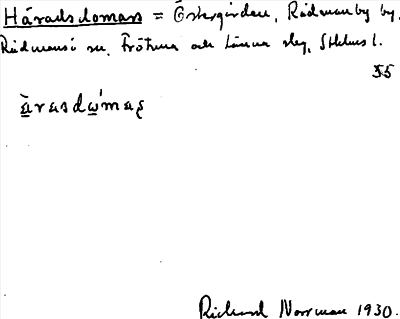 Häradsdomars = Östergården, Rådmanby by,
Rådmansö sn, Frötuna och Länna skg, Sthlms l.
55
àrasdω'mas
Richard Norrman 1930.